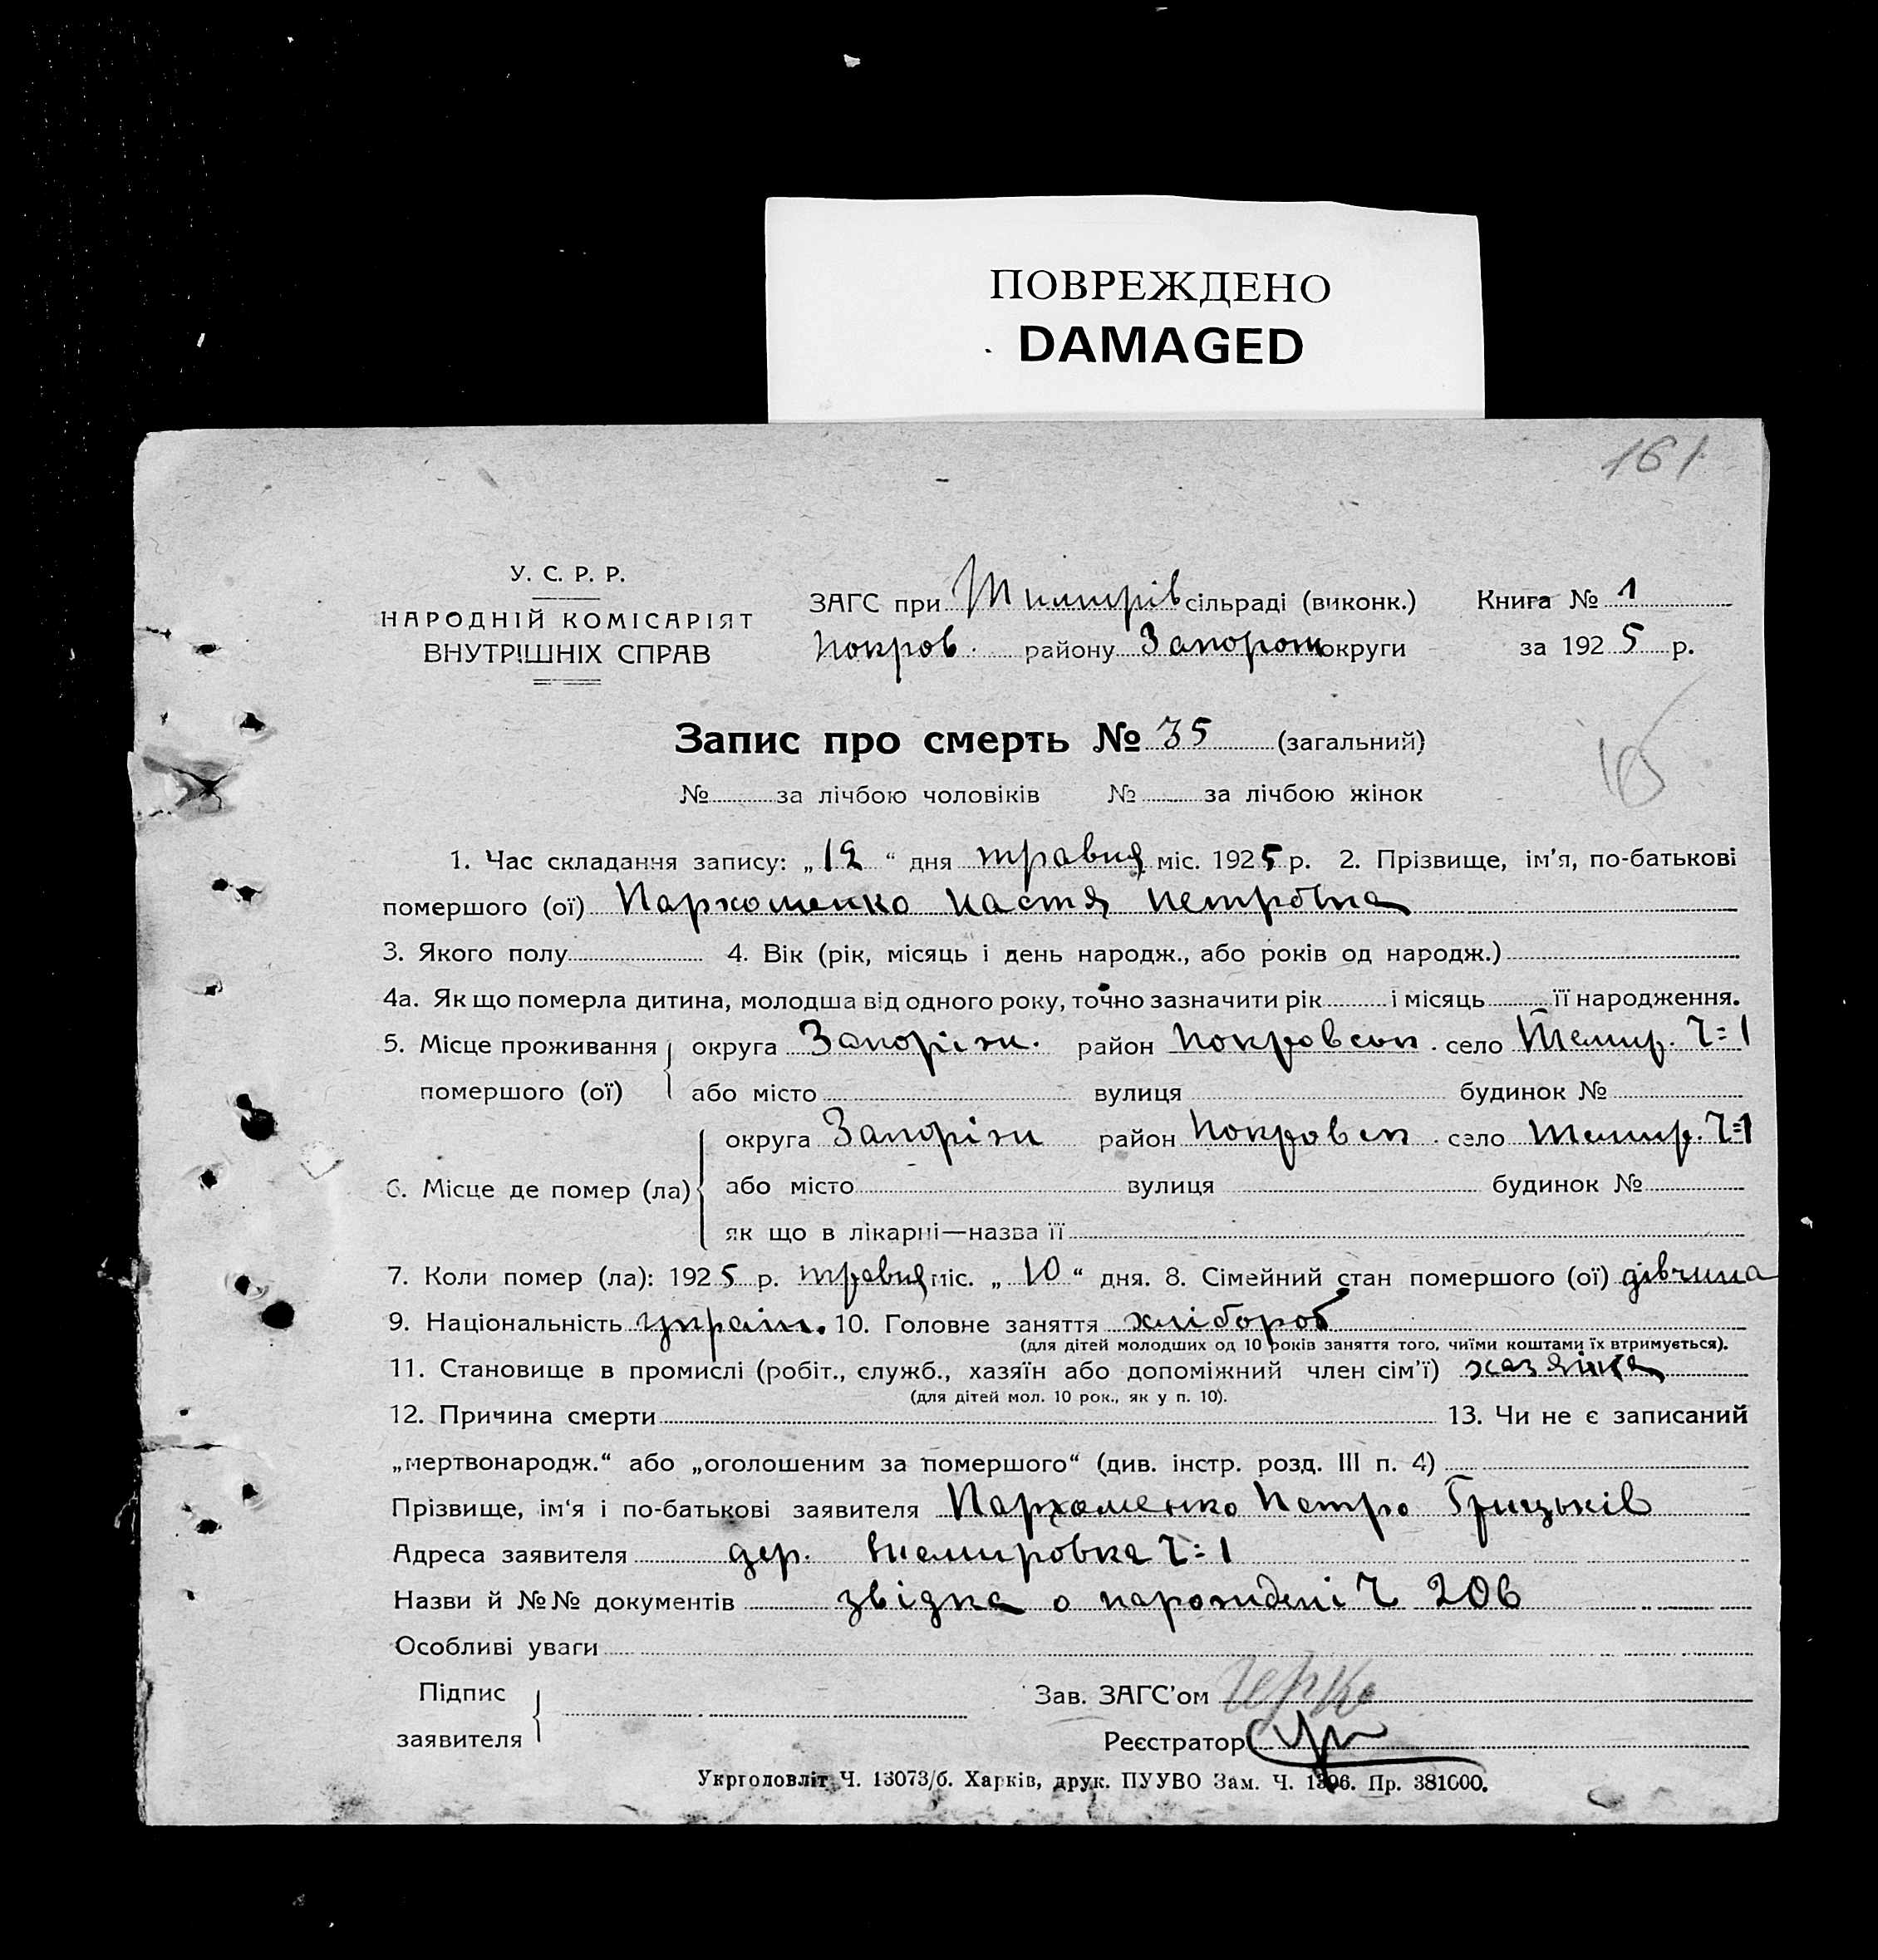 ПОВРЕЖДЕНО
DAMAGED
161
У. С. Р. Р.
НАРОДНІЙ КОМІСАРІЯТ
ВНУТРІШНІХ СПРАВ
ЗАГС при Тимирів сільраді (виконк.) Книга № 1
Покров. району Запорож округи за 1925 р.
Запис про смерть № 35 (загальний)
№ за лічбою чоловіків № за лічбою жінок
1. Час складання запису: „12“ дня травня міс. 1925 р. 2. Прізвище, ім’я, по-батькові
помершого (ої) Пархоменко Настя Петровна
3. Якого полу 4. Вік (рік, місяць і день народж., або років од народж.)
4а. Як що померла дитина, молодша від одного року, точно зазначити рік і місяць її народження.
5. Місце проживання округа Запоріж. район Покровськ. село Темир. Ч=1
помершого (ої) або місто вулиця будинок №
округа Запоріж район Покровсп. село Темир. Ч=1
6. Місце де помер (ла) або місто вулиця будинок №
як що в лікарні—назва її
7. Коли помер (ла): 1925 р. травня міс. „10“ дня. 8. Сімейний стан помершого (ої) дівчина
9. Національність україн. 10. Головне заняття хлібороб
(для дітей молодших од 10 років заняття того, чиїми коштами їх втримується).
11. Становище в промислі (робіт., служб., хазяїн або допоміжний член сім’ї) хазяїка
(для дітей мол. 10 рок., як у п. 10).
12. Причина смерти 13. Чи не є записаний
„мертвонародж.“ або „оголошеним за помершого“ (див. інстр. розд. III п. 4)
Прізвище, ім‘я і по-батькові заявителя Пархоменко Петро Грицьків
Адреса заявителя дер. Темировка Ч=1
Назви й №№ документів звідка о нарождені Ч 206
Особливі уваги
Підпис Зав. ЗАГС’ом
заявителя Реєстратор
Укрголовліт Ч. 13073/б. Харків, друк. ПУУВО Зам. Ч. 1396. Пр. 381000.